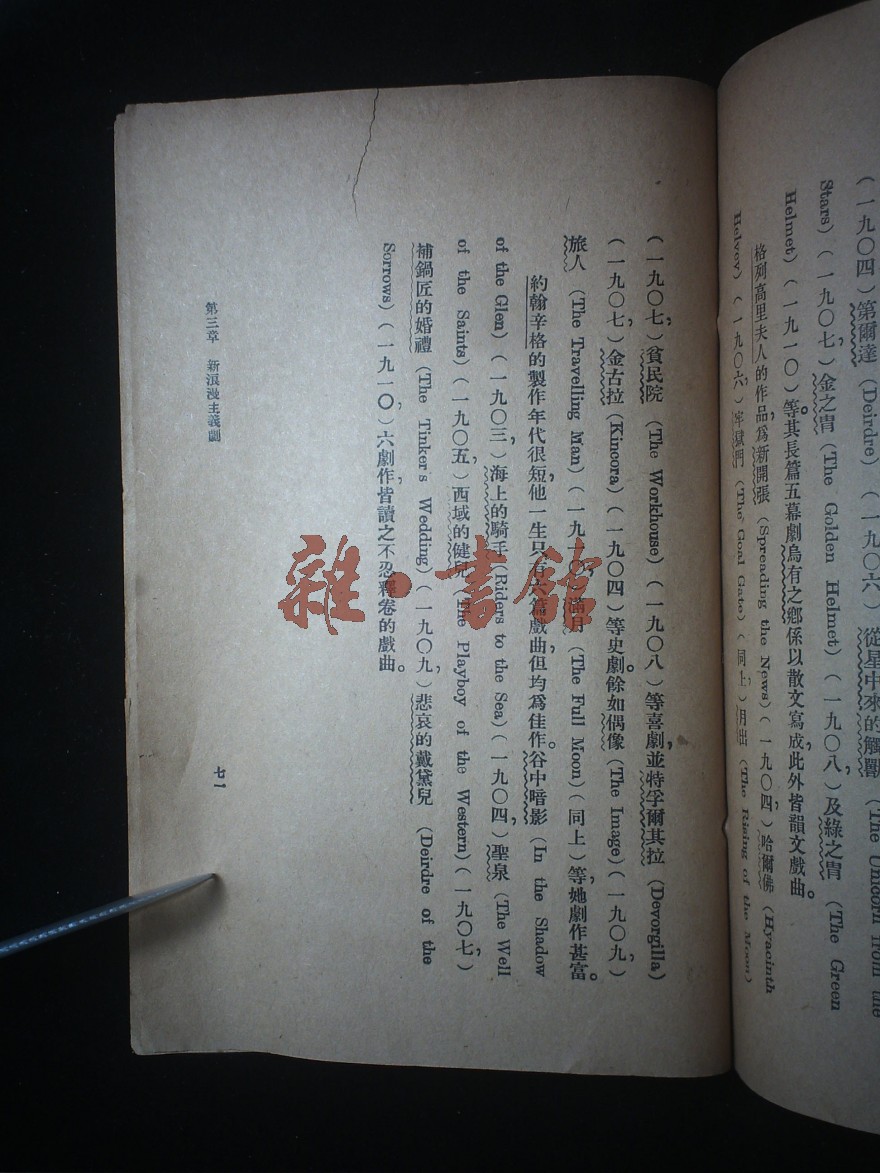 （一九〇四）第爾達（Deirdre）（一九〇六，）從星中來的觸獸（The Unicorn from the
Stars）（一九〇七，）金之冑（The Golden Helmet）（一九〇八，）及綠之冑（The Green
Helmet）（一九一〇）等。其長篇五幕劇烏有之鄉係以散文寫成，此外皆韻文戲曲。
格列高里夫人的作品，爲新開張（Spreading the News）（一九〇四，）哈爾佛（Hyacinth
Helvey）（一九〇六，）牢獄門（The Goal Gate）（同上，）月出（The Rising of the Moon）
（一九〇七，）貧民院（The Workhouse）（一九〇八）等喜劇，並特孚爾其拉（Devorgilla）
（一九〇七，）金古拉（Kincora）（一九〇四）等史劇。餘如偶像（The Image）（一九〇九，）
旅人（The Travelling Man）（一九一〇，）滿月（The Full Moon）（同上）等，她劇作甚富。
約翰辛格的製作年代很短，他一生只有六篇戲曲，但均爲佳作。谷中暗影（In the Shadow
of the Glen）（一九〇三，）海上的騎手（Riders to the Sea）（一九〇四，）聖泉（The Well
of the Saints）（一九〇五，）西域的健兒（The Playboy of the Western）（一九〇七，）
補鍋匠的婚禮（The Tinker's Wedding）（一九〇九，）悲哀的戴黛兒（Deirdre of the
Sorrows）（一九一〇，）六劇作，皆讀之不忍釋卷的戲曲。
第三章 新浪漫主義劇
七一
雜·書館